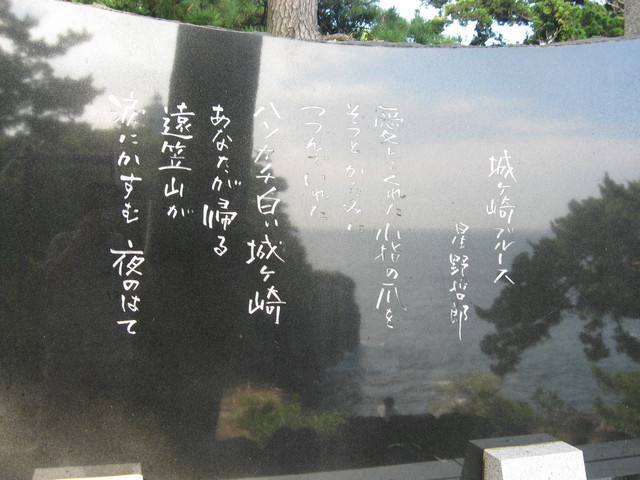 城ヶ崎ブルース
星野哲郎
愛してくれた小指の爪を
そっとからめて
つつんでいれた
ハンカチ白い城ヶ崎
あなたが帰る
遠笠山が
涙にかすむ夜のはて